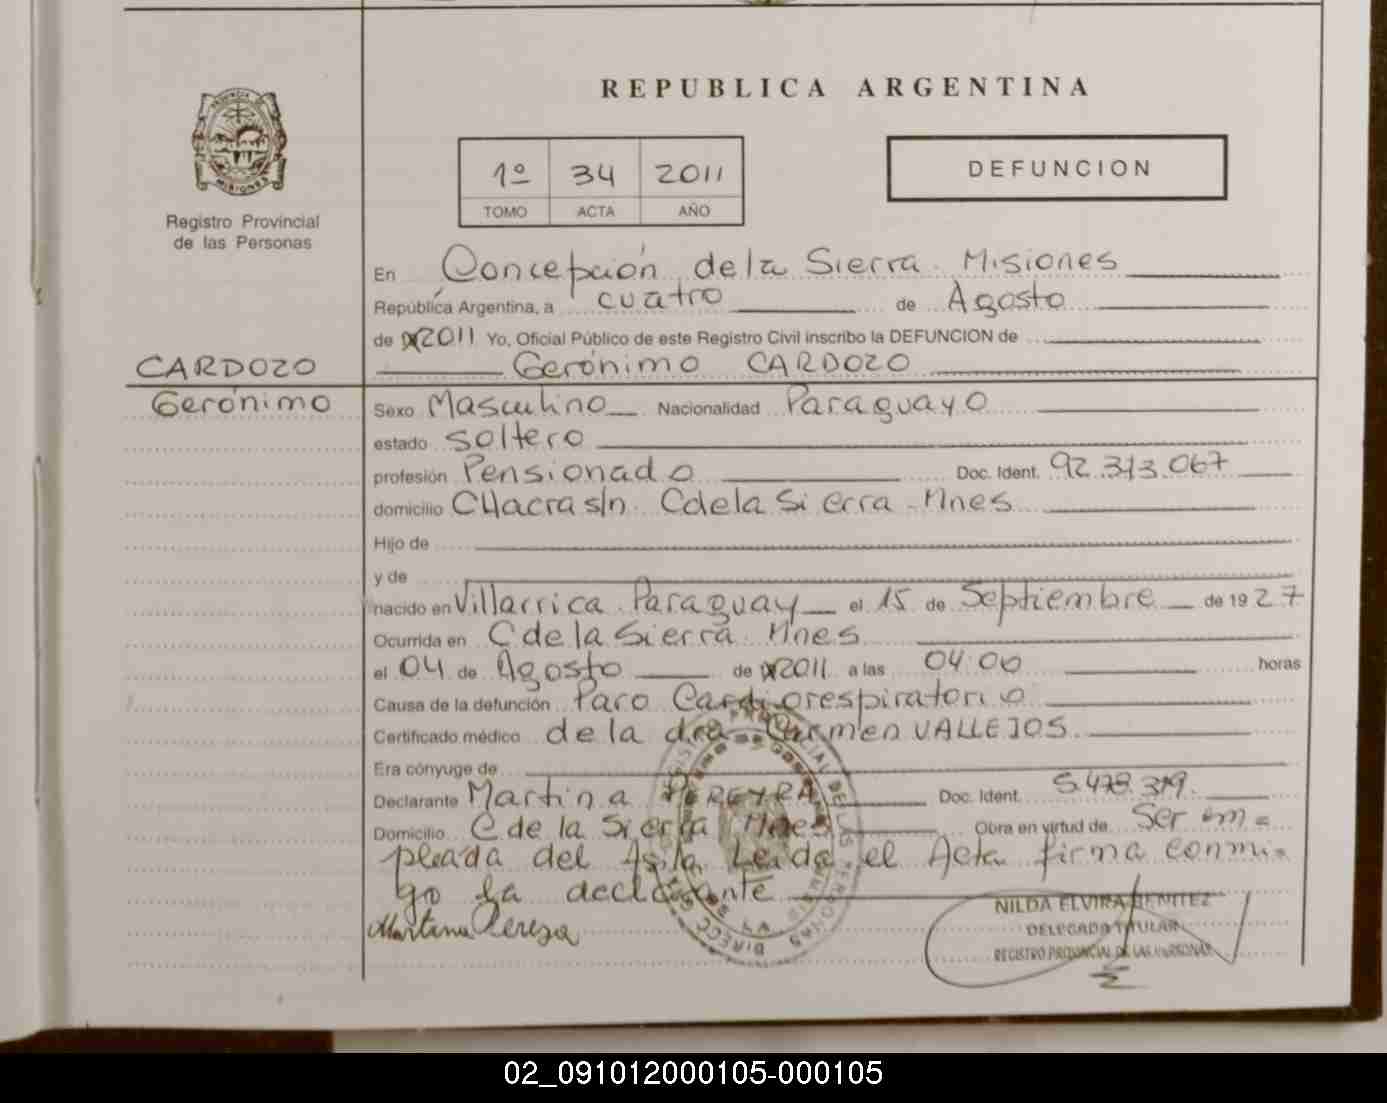 REPUBLICA ARGENTINA
1º 34 2011
TOMO ACTA AÑO
DEFUNCION
PROVINCIA DE
MISIONES
Registro Provincial
de las Personas
En Concepción de la Sierra. Misiones
República Argentina, a cuatro de Agosto
de 2011 Yo, Oficial Público de este Registro Civil inscribo la DEFUNCION de
CARDOZO
Gerónimo
Gerónimo CARDOZO
Sexo Masculino Nacionalidad Paraguayo
estado soltero
profesión Pensionado Doc. Ident. 92.313.067
domicilio CHacra s/n. C de la Sierra - Mnes
Hijo de
y de
nacido en Villarrica. Paraguay el 15 de Septiembre de 1927
Ocurrida en C de la Sierra. Mnes
el 04 de Agosto de 2011 a las 04:00 horas
Causa de la defunción Paro Cardiorespiratorio
Certificado médico de la dra. Carmen VALLEJOS
Era cónyuge de
Declarante Martina PEREYRA Doc. Ident. 5.478.319.
Domicilio C de la Sierra Mnes Obra en virtud de Ser em=
pleada del Asilo Leida el Acta firma conmi=
go la declarante
Martina Pereyra
NILDA ELVIRA BENITEZ
DELEGADA TITULAR
REGISTRO PROVINCIAL DE LAS PERSONAS
02_091012000105-000105